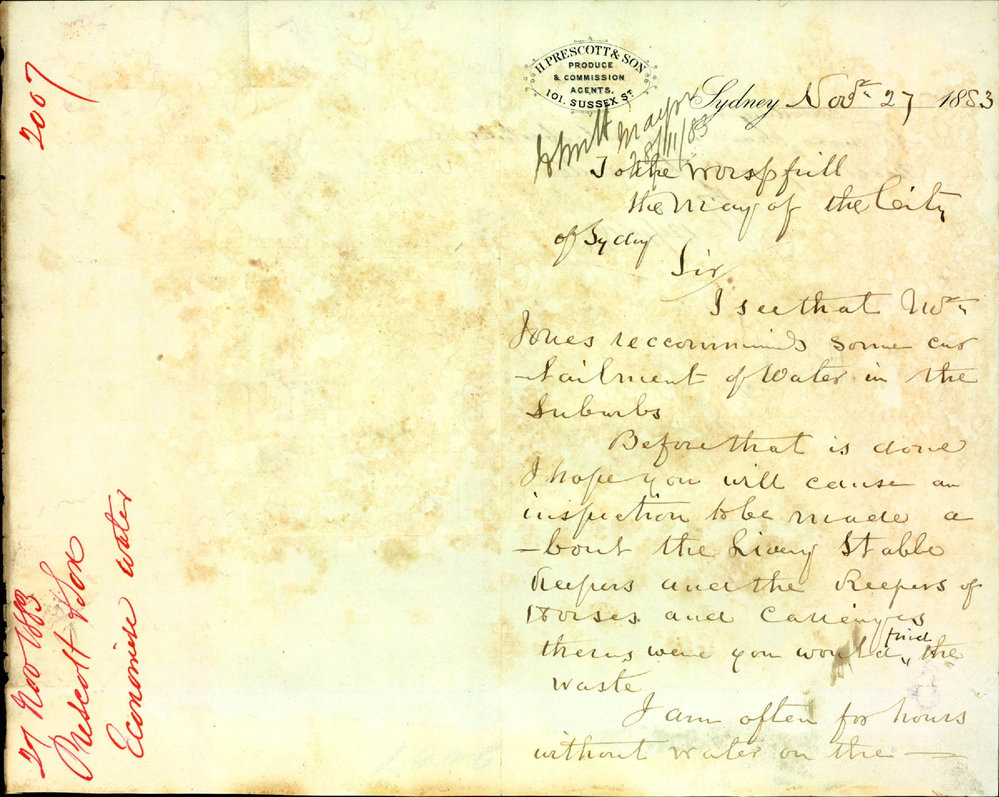 2007
27 Nov 1883
Prescott & Son
Economise water
H. PRESCOTT & SON
PRODUCE
& COMMISSION
AGENTS.
101. SUSSEX ST.
Sydney Novr. 27 1883
Mayor
28/11/83
To the Worspfull
the May of the City
of Sydny
Sir
I see that Mr.
Jones reccomminds some cur
-tailment of Water in the
Suburbs
Before that is done
I hope you will cause an
inspection to be made a
-bout the Livery Stable
Keepers and the Keepers of
Horses and Carriages
therus were you would find the
waste
I am often for hours
without water on the —